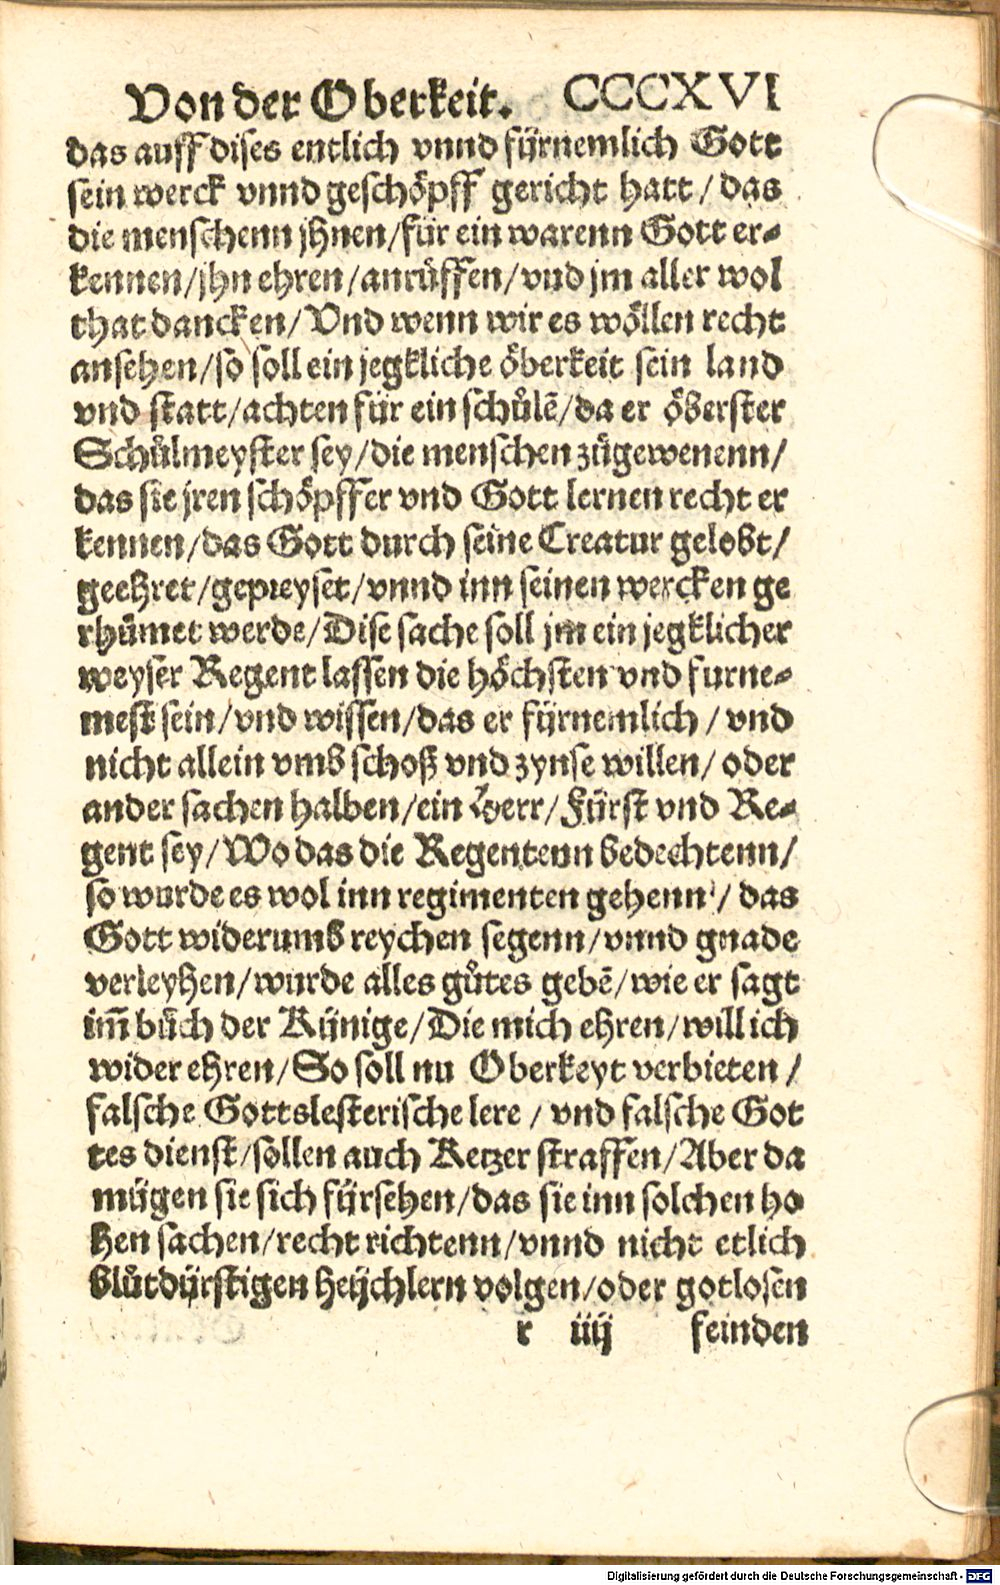 Von der Oberkeit. CCCXVI
das auff dises entlich vnnd fürnemlich Gott
sein werck vnnd geschöpff gericht hatt / das
die menschenn jhnen/für ein warenn Gott er-
kennen/jhn ehren/anrüffen/vnd jm aller wol
that dancken/Vnd wenn wir es wöllen recht
ansehen/so soll ein jegkliche öberkeit sein land
vnd statt/achten für ein schůlē/da er öberster
Schůlmeyster sey/die menschen zůgewenenn/
das sie jren schöpffer vnd Gott lernen recht er
kennen/das Gott durch seine Creatur gelobt/
geehret/gepreyset/vnnd inn seinen wercken ge
rhümet werde/Dise sache soll jm ein jegklicher
weyser Regent lassen die höchsten vnd furne-
mest sein/vnd wissen/das er fürnemlich / vnd
nicht allein vmb schoß vnd zynse willen/ oder
ander sachen halben/ein Herr/Fürst vnd Re-
gent sey/Wo das die Regentenn bedechtenn/
so wurde es wol inn regimenten gehenn / das
Gott widerumb reychen segenn/vnnd gnade
verleyhen/wurde alles gůtes gebē/wie er sagt
im̄ bůch der Künige/Die mich ehren/will ich
wider ehren/So soll nu Oberkeyt verbieten /
falsche Gottslesterische lere / vnd falsche Got
tes dienst/sollen auch Ketzer straffen/Aber da
mügen sie sich fürsehen/das sie inn solchen ho
hen sachen/recht richtenn/vnnd nicht etlich
blůtdürstigen heüchlern volgen/oder gotlosen
r iiij feinden
Digitalisierung gefördert durch die Deutsche Forschungsgemeinschaft - DFG